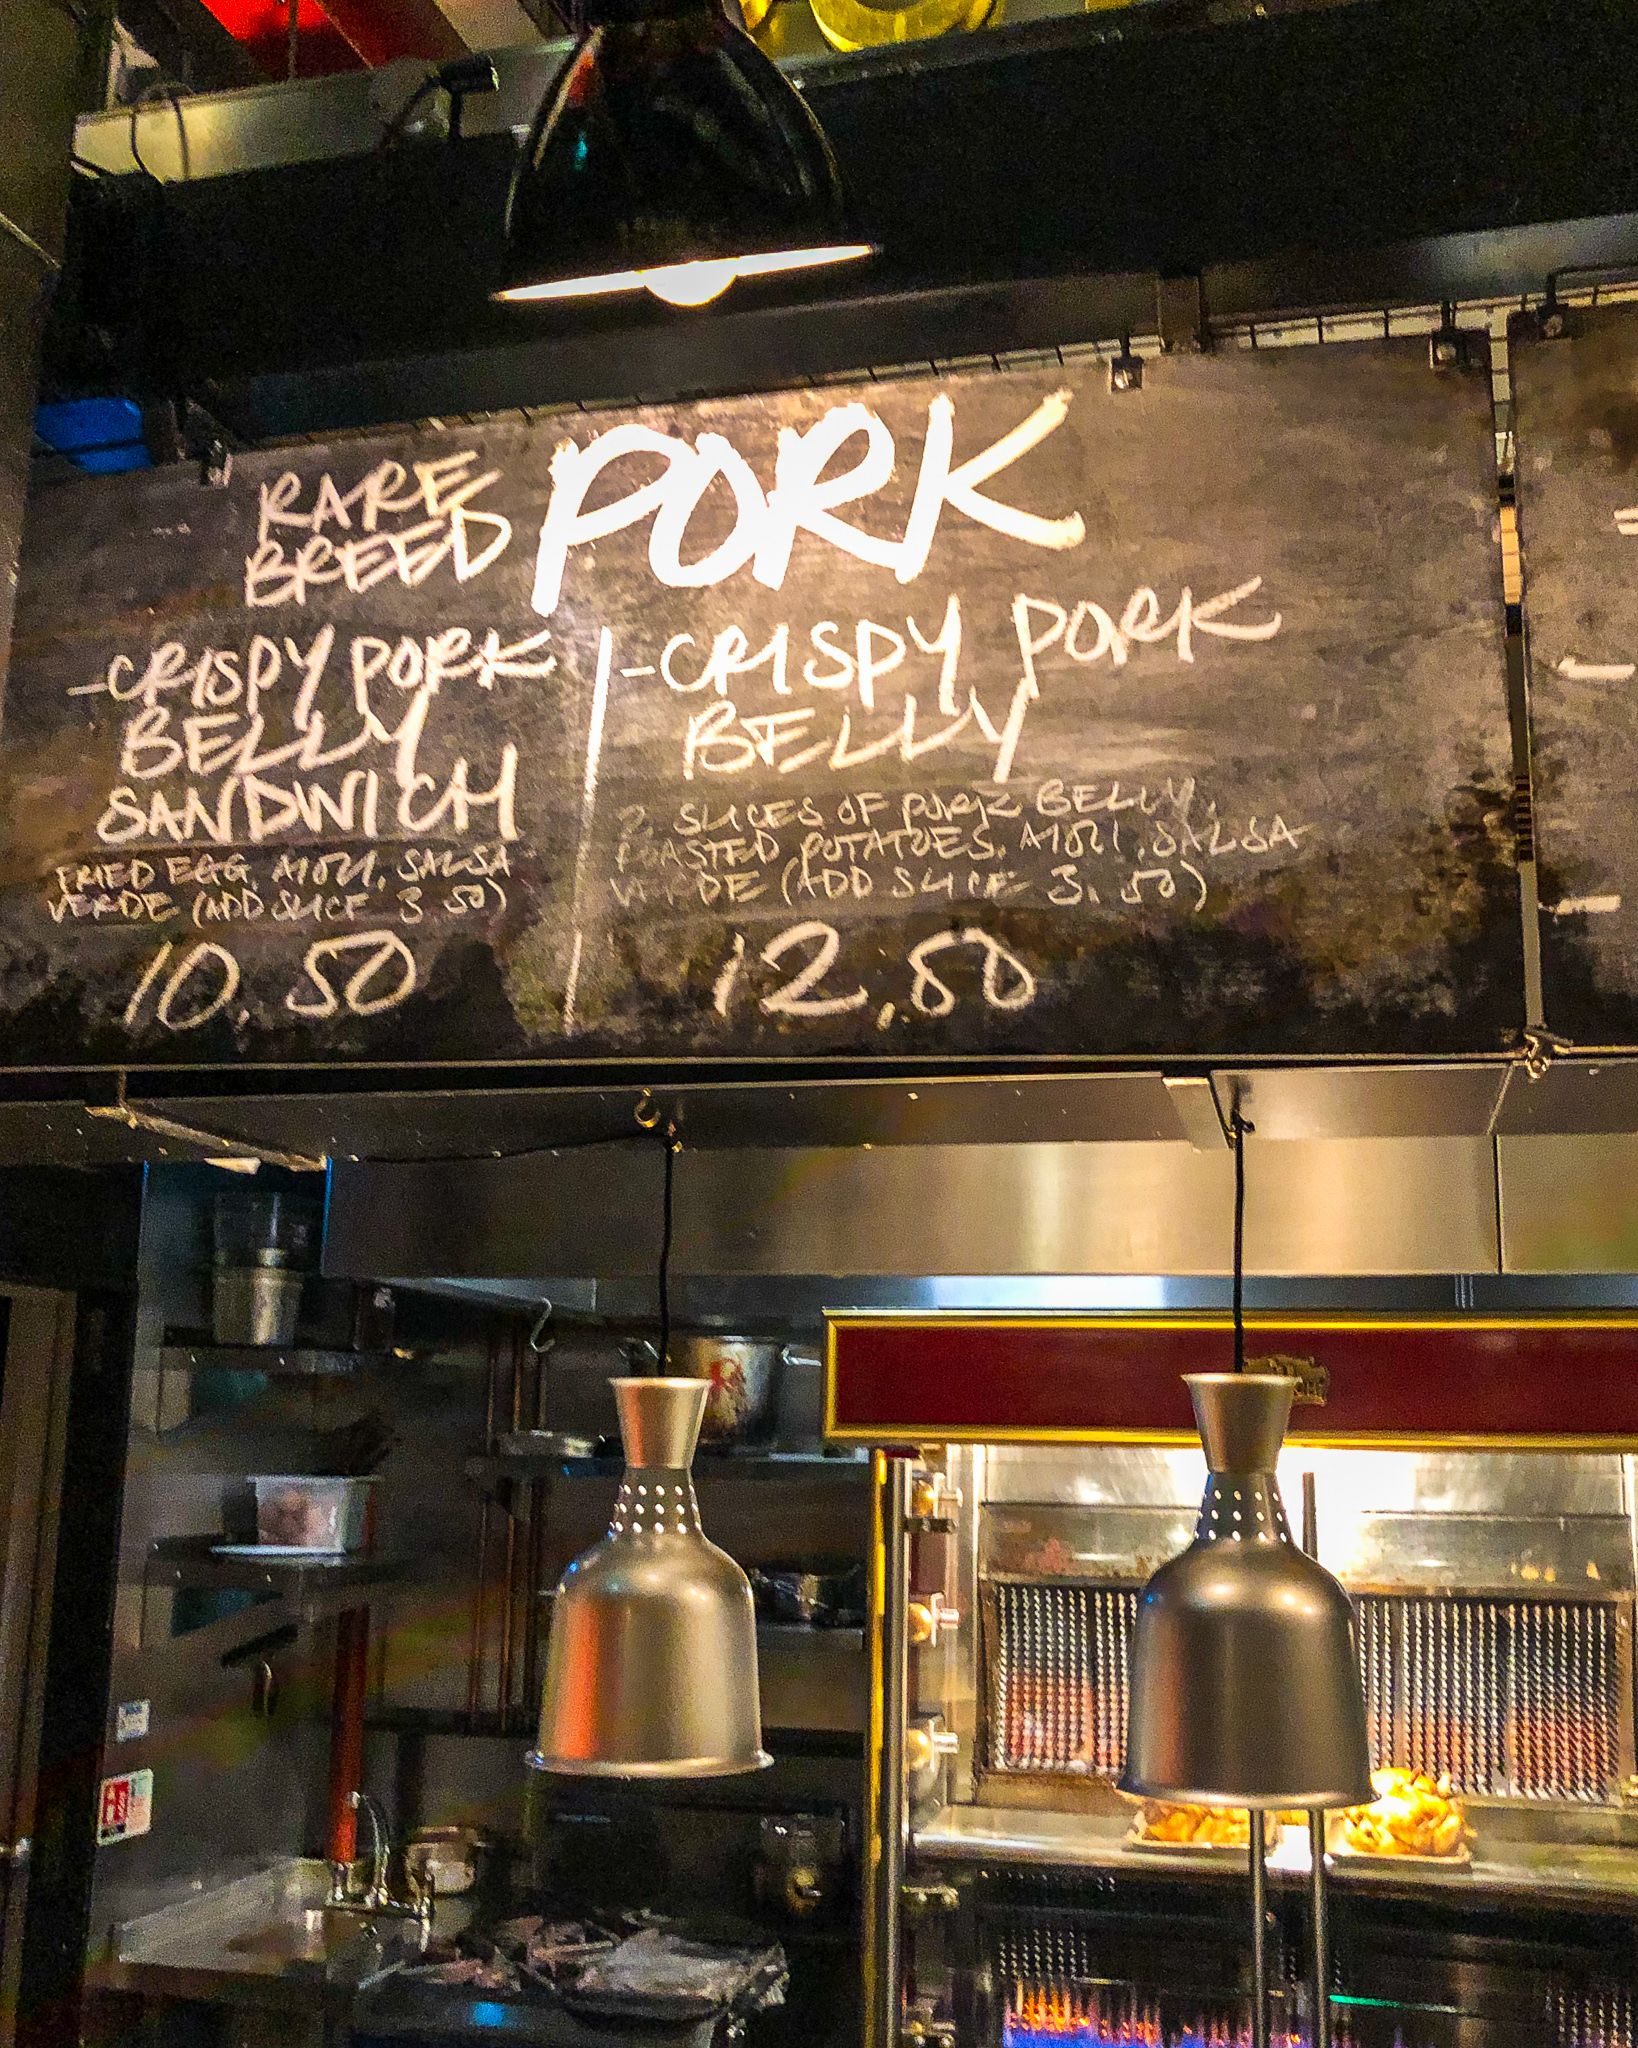 RARE
BREED
PORK
-CRISPY PORK
BELLY
SANDWICH
FRIED EGG, AIOLI, SALSA
VERDE (ADD SLICE 3.50)
10.50
-CRISPY PORK
BELLY
2 SLICES OF PORK BELLY,
ROASTED POTATOES, AIOLI, SALSA
VERDE (ADD SLICE 3.50)
12.50